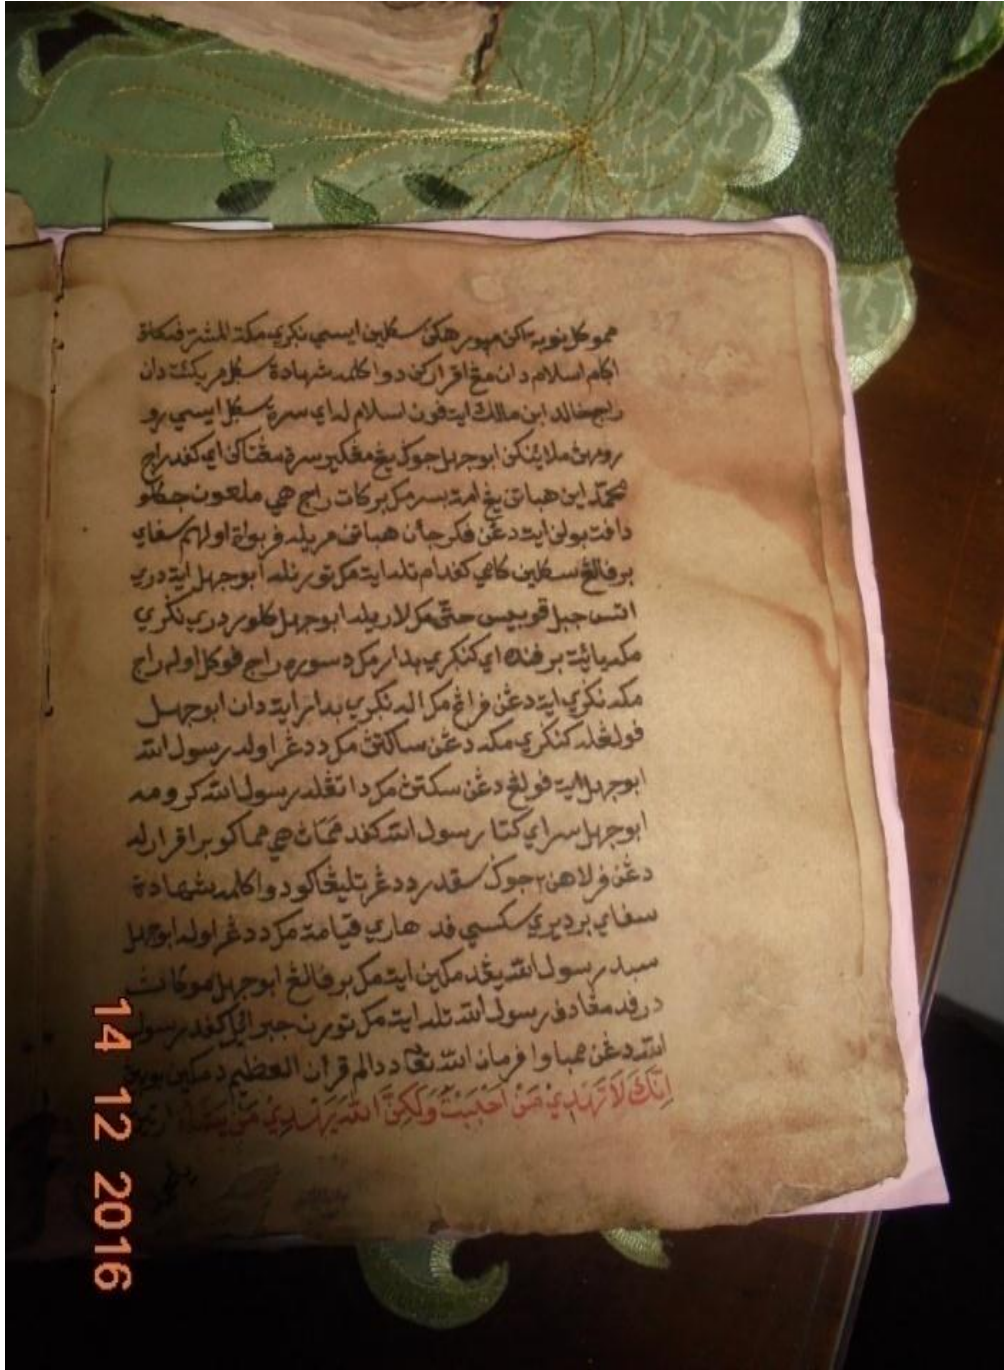 مموكل نوبة اكن مپورهكن سكلين ايسي نكري مكة المشرفة كات
اكام اسلام دان مڠ اقراركن دوا كلمه شهادة سكل مريكئت دان
راج خالد ابن مالك ايت فون اسلام له اي سرة سكل ايسي رو
رومهن ملاينكن ابوجهل جوك يڠ مڠكير سرة مڠتاكن اي كفد راج
محمد اين هباتن يڠ امة بسر مك بركات راج هي ملعون جكلو
دافت بولن ايت دڠن فكرجأن هباتن مريله فربواة اولهم سفاي
برفالڠ سكلين كامي كفدام تله ايت مك تورنله ابوجهل ايت دري
اتس جبل قوبيس حتى مك لاريله ابوجهل كلور دري نكري
مكه يائيت برفنده اي كنكري بدار مك دسوره راج فوكل اوله راج
مكه نكري ايت دڠن فراڠ مك اله نكري بدار ايت دان ابوجهل
فولڠله كنكري مكه دڠن ساكتن مك ددڠر اوله رسول الله
ابوجهل ايت فولڠ دڠن سكتن مك داتڠله رسول الله كرومه
ابوجهل سراي كتا رسول الله كفد ممات هي مماكو براقرارله
دڠن فرلاهن٢ جوك سقدر ددڠر تليڠاكو دوا كلمه شهادة
سفاي برديري سكسي فد هاري قيامة مك ددڠر اوله ابوجهل
سبد رسول الله يڠد مكين ايت مك برفالڠ ابوجهل موكات
درفد مڠادف رسول الله تله ايت مك تورن جبرائيل كفد رسول
الله دڠن ممباوا فرمان الله تعالى ددالم قرأن العظيم دمكين بوين
اِنَّكَ لَا تَهْدِيْ مَنْ اَحْبَبْتَ وَلٰكِنَّ اللهَ يَهْدِيْ مَنْ يَشَاءُ
14 12 2016